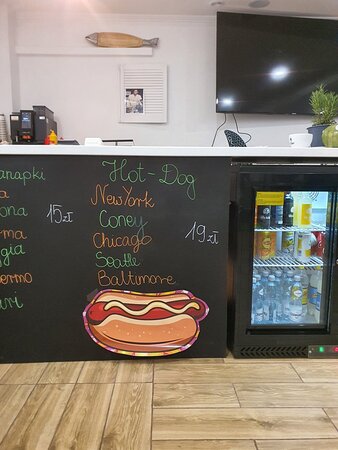 anapki
ona
rma
gia
ermo
ari
15zł
Hot-Dog
New York
Coney
Chicago
Seatle
Baltimore
19zł